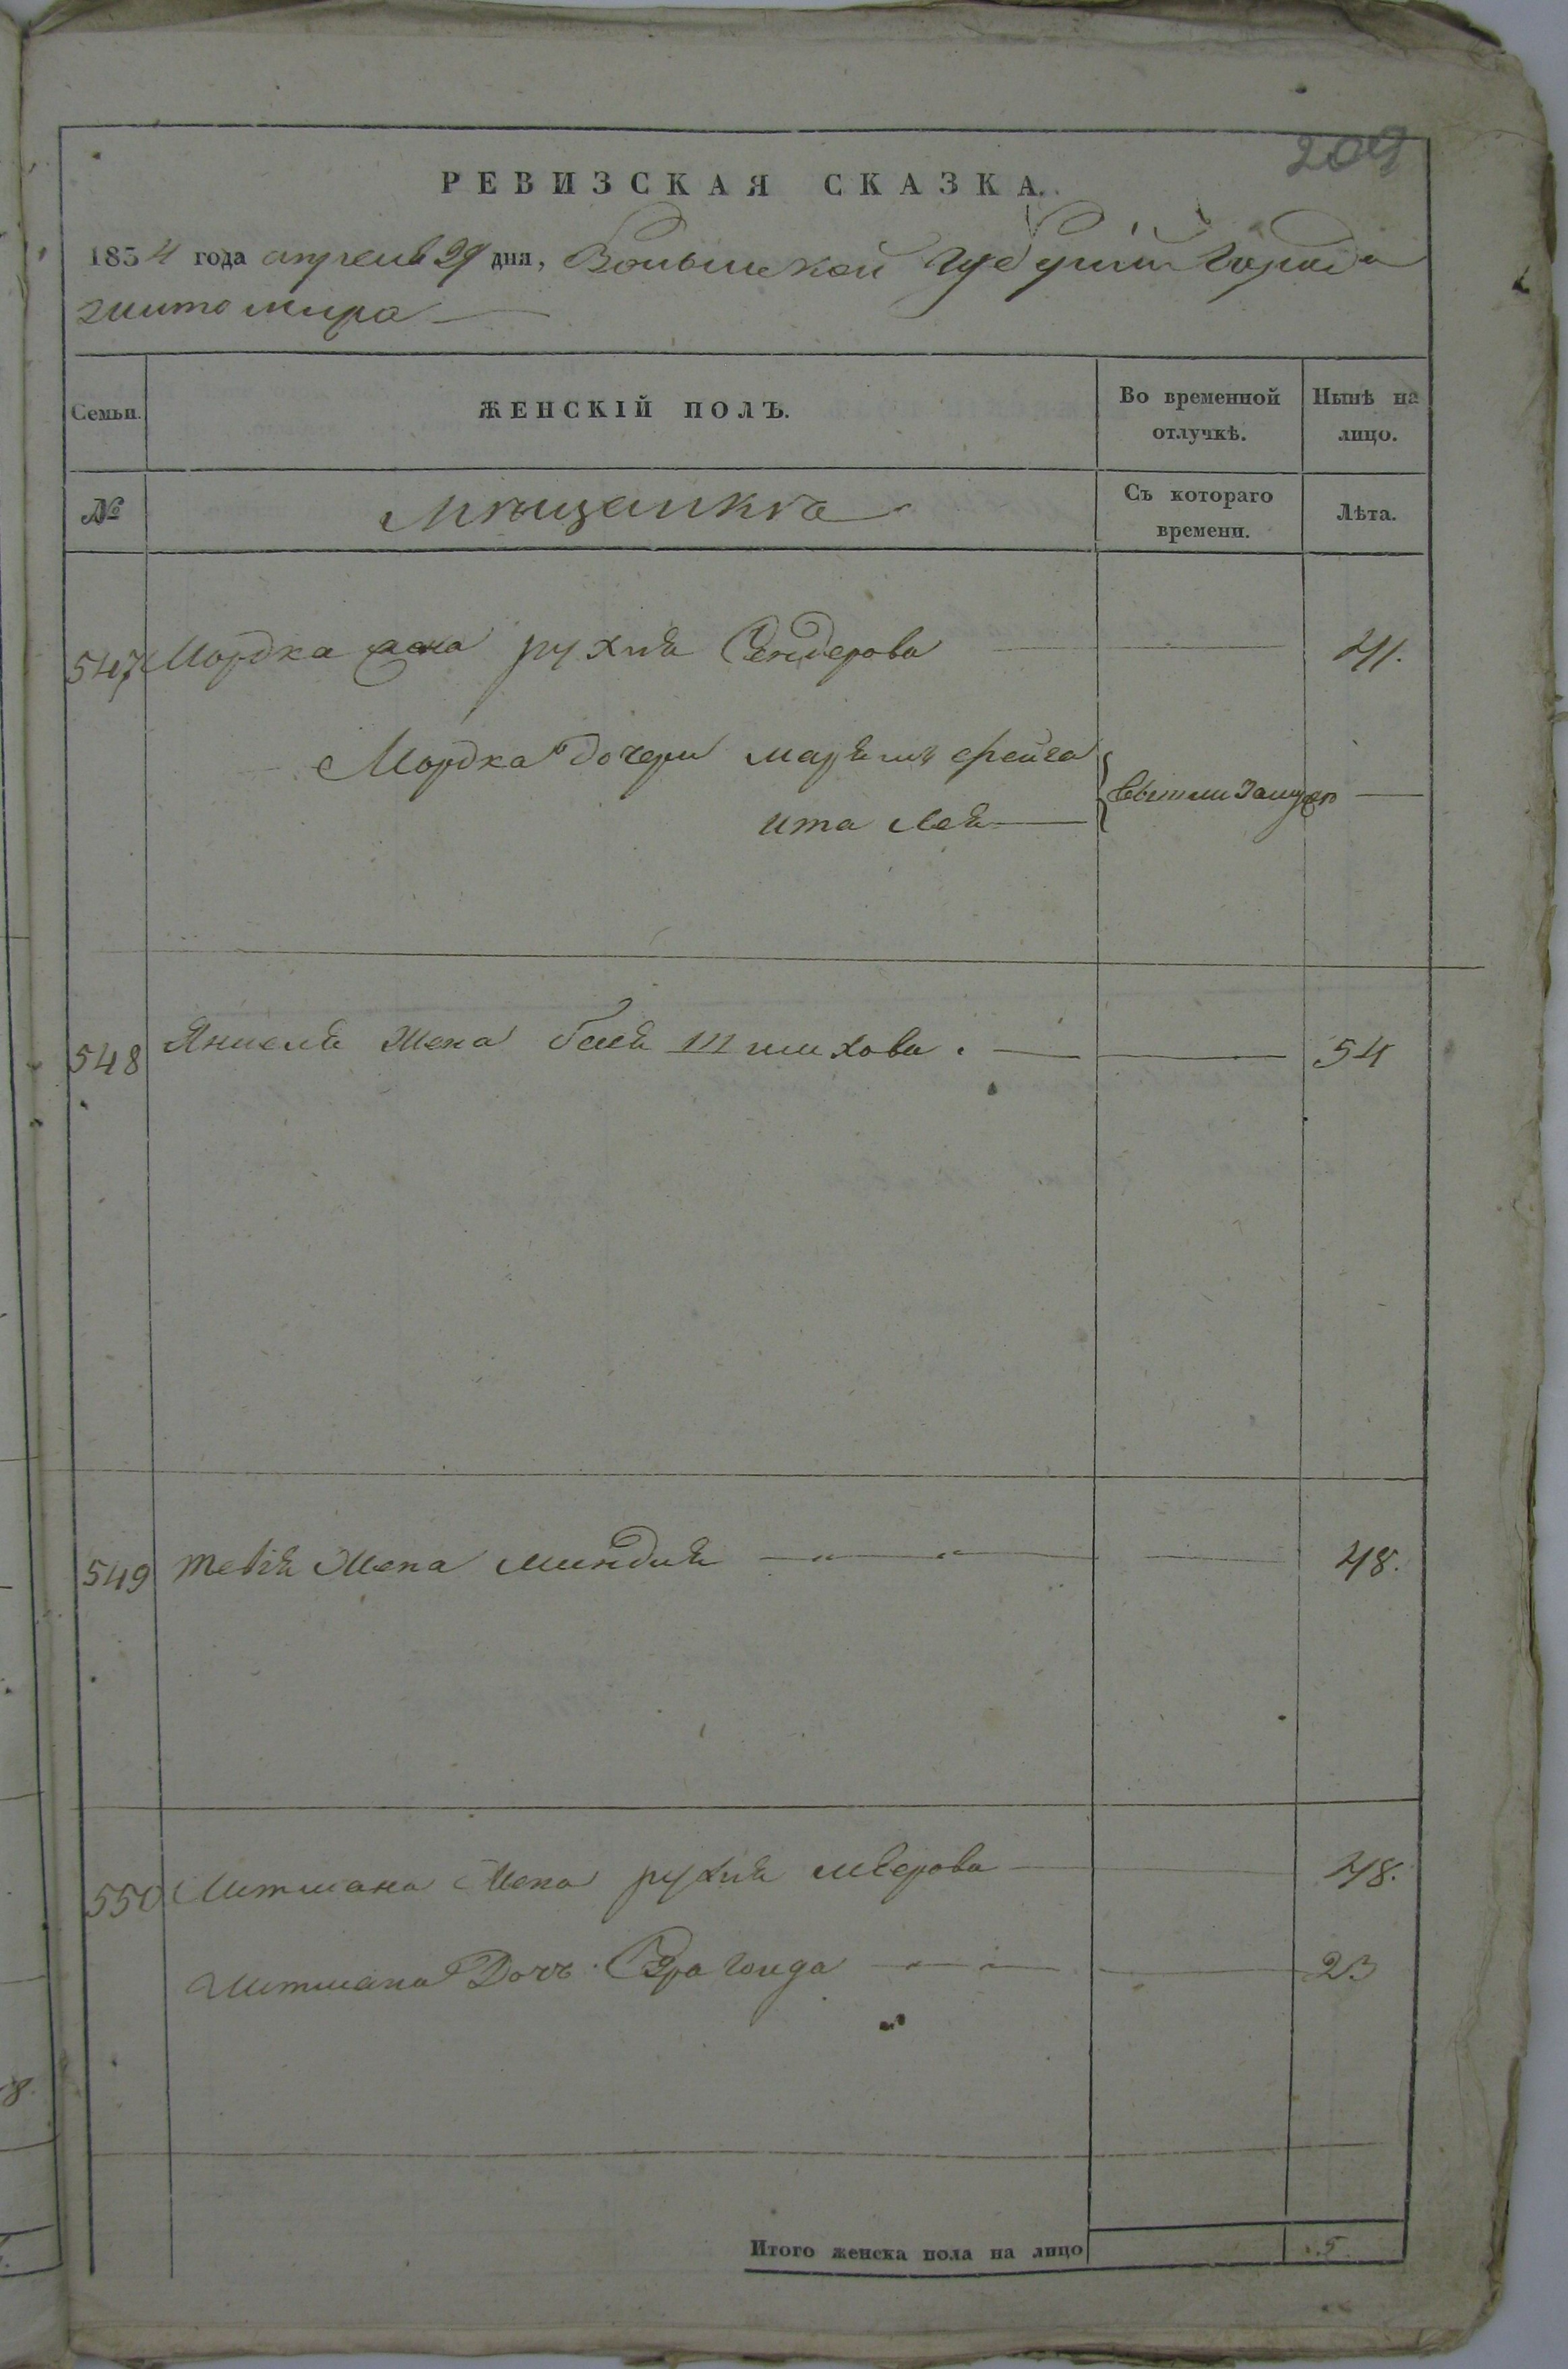 209
РЕВИЗСКАЯ СКАЗКА.
1854 года апреля 29 дня, Волынской Губернии Города
житомира
Семьи. ЖЕНСКІЙ ПОЛЪ. Во временной отлучкѣ. Нынѣ на лицо.
№ мѣщанкѣ Съ котораго времени. Лѣта.
547 Мордка жена рухля Сендерова 41.
Мордка дочери марямъ фейга
ита лея вышли замужъ
548 Янкеля жена бейля Шмихова. 54
549 тевія жена миндля 48.
550 Литмана жена рухля меерова 48.
Литмана Дочъ Сура голда 23
Итого женска пола на лицо 5